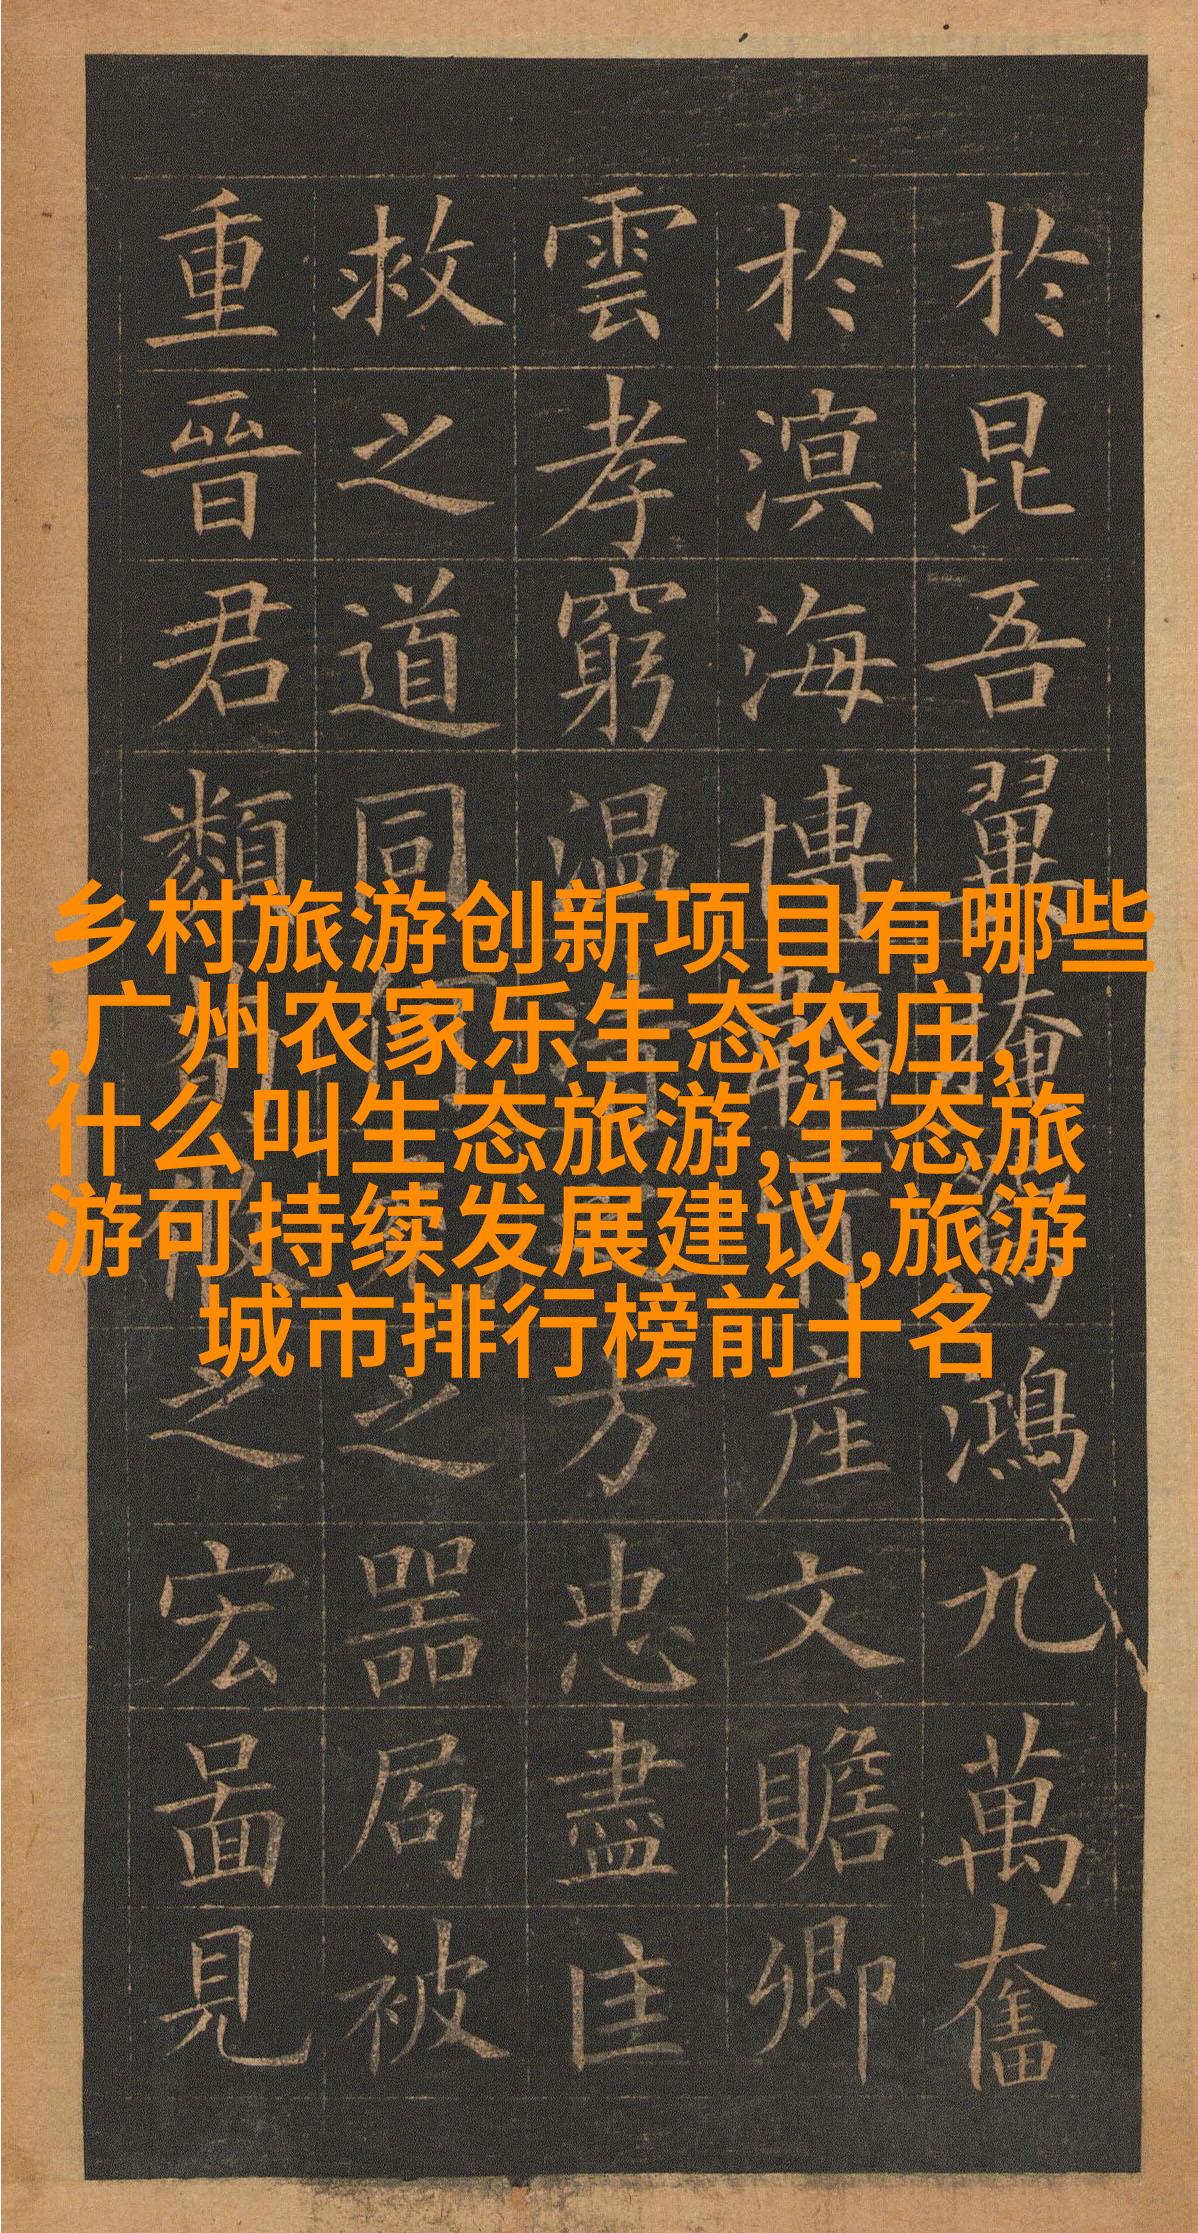 乡村旅游创新项目有哪些
,广州农家乐生态农庄,
什么叫生态旅游,生态旅
游可持续发展建议,旅游
城市排行榜前十名
於昆吾翼掩鴻九萬奮
於溟海産文贍卿
雲孝窮温清之方忠盡匡
救之道同何充之器局被
重晉君類之宏啚見